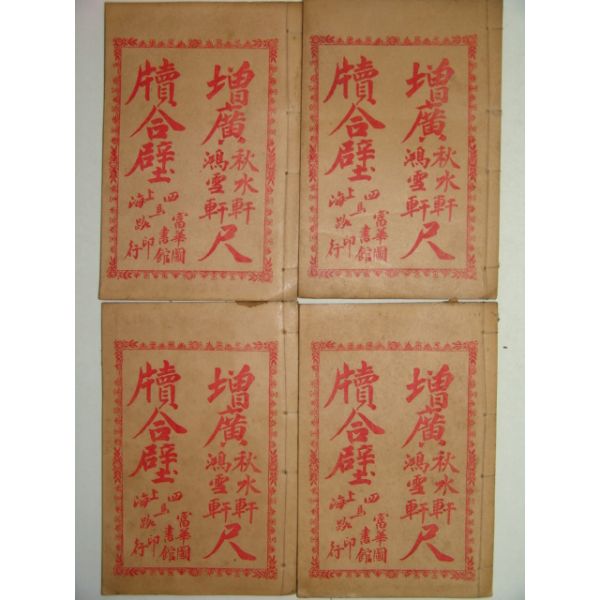 增廣
秋水軒
鴻雪軒
尺
牘合璧
上海四馬路
富華圖書館
印行
增廣
秋水軒
鴻雪軒
尺
牘合璧
上海四馬路
富華圖書館
印行
增廣
秋水軒
鴻雪軒
尺
牘合璧
上海四馬路
富華圖書館
印行
增廣
秋水軒
鴻雪軒
尺
牘合璧
上海四馬路
富華圖書館
印行